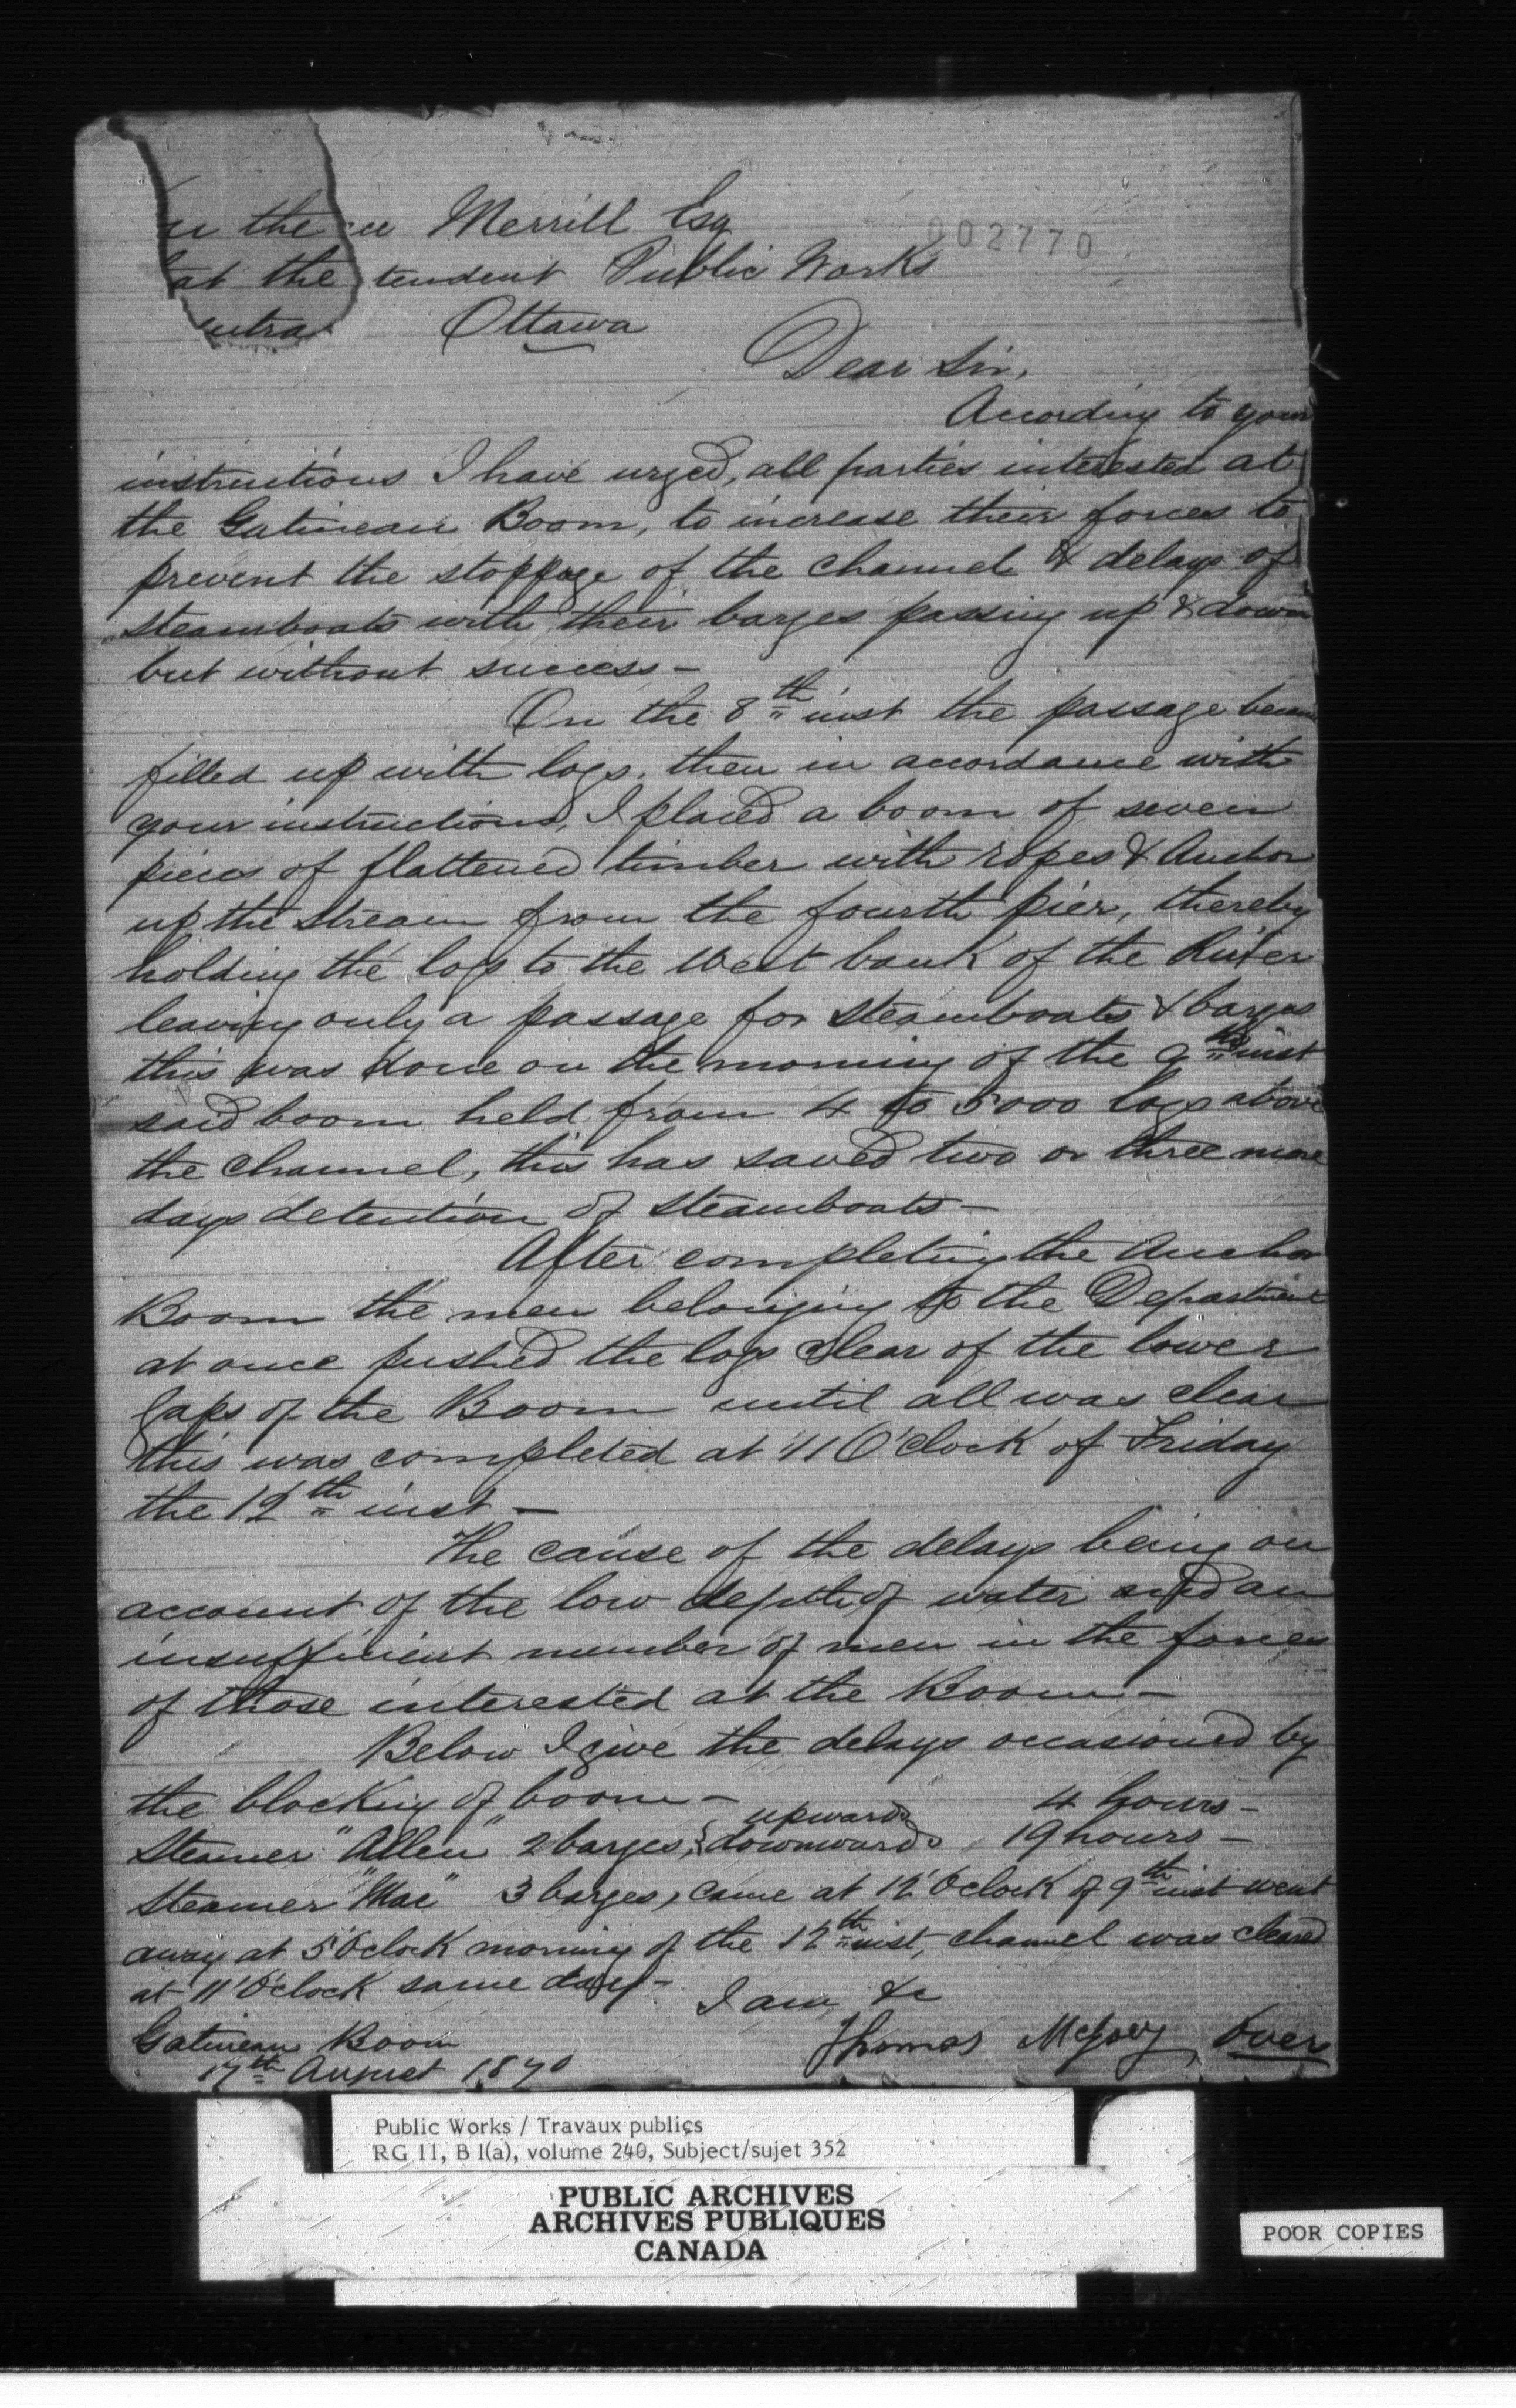 u the ce Merrill Esq
002770
at the tendent Public Works
Ottawa
Dear Sir,
According to your
instructions I have urged, all parties interested at
the Gatineau Boom, to increase their forces to
prevent the stoppage of the channel & delays of
steamboats with their barges passing up & down
but without success -
On the 8th inst the passage became
filled up with logs. then in accordance with
your instructions, I placed a boom of seven
pieces of flattened timber with ropes & Anchor
up the stream from the fourth pier, thereby
holding the logs to the West bank of the River
leaving only a passage for steamboats & barges
this was done on the morning of the 9th inst
said boom held from 4 to 5000 logs above
the channel, this has saved two or three more
days detention of steamboats -
After completing the Anchor
Boom the men belonging to the Department
at once pushed the logs clear of the lower
gaps of the Boom until all was clear
this was completed at 11 O'Clock of Friday
the 12th inst -
The cause of the delays being on
account of the low depth of water and an
insufficient number of men in the forces
of those interested at the Boom -
Below I give the delays occasioned by
the blocking of boom -
upwards 4 hours -
Steamer "Allen" 2 barges, { downwards 19 hours -
Steamer "Mac" 3 barges, came at 12 O'clock of 9th inst went
away at 5 O'clock morning of the 12th inst, channel was cleared
at 11 O'clock same day -
I am &c
Gatineau Boom
Thomas McGoey Over
17th August 1870
Public Works / Travaux publics
RG 11, B I(a), volume 240, Subject/sujet 352
PUBLIC ARCHIVES
ARCHIVES PUBLIQUES
CANADA
POOR COPIES